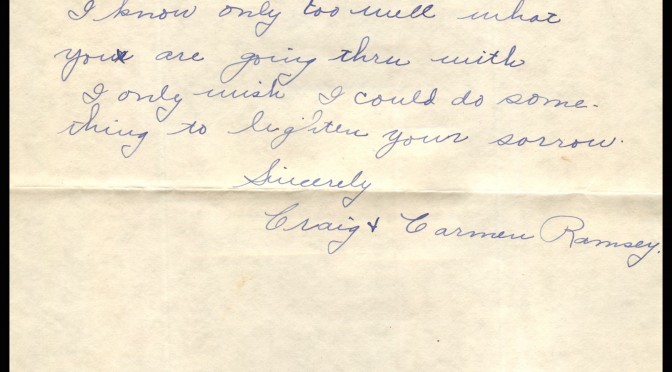 I know only too well what
you are going thru with
I only wish I could do some-
thing to lighten your sorrow.
Sincerely
Craig & Carmen Ramsey.